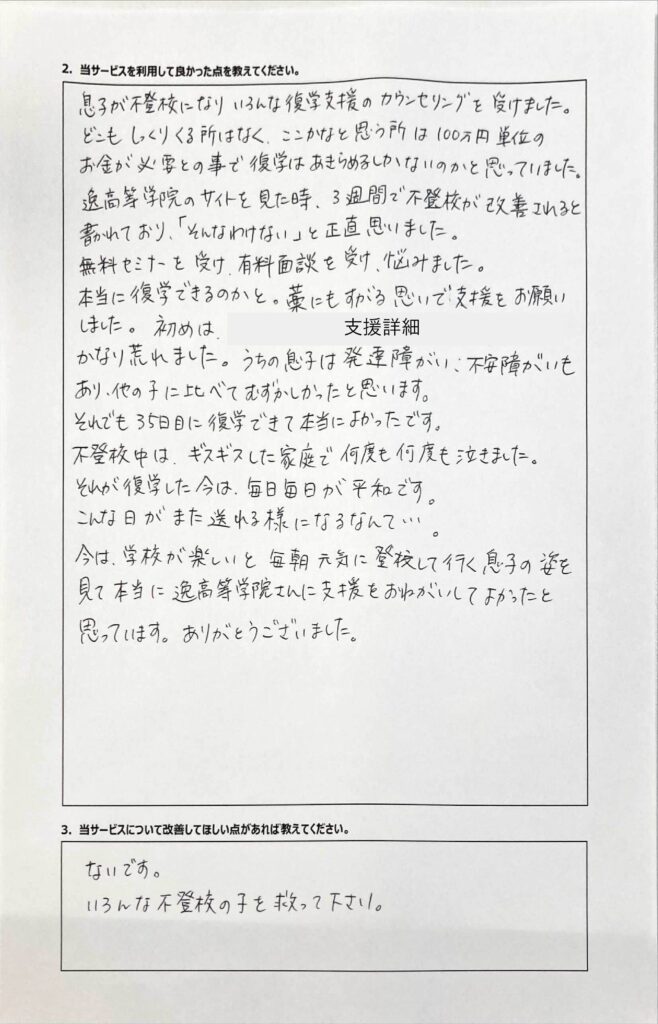 2. 当サービスを利用して良かった点を教えてください。
息子が不登校になり いろんな復学支援の カウンセリングを 受けました。
どこも しっくりくる所はなく、ここかなと思う所は 100万円単位の
お金が必要との事で復学は あきらめるしかないのかと思っていました。
逸高等学院のサイトを見た時、3週間で不登校が改善されると
書かれており、「そんなわけない」と正直思いました。
無料セミナーを受け、有料面談を受け、悩みました。
本当に復学できるのかと。藁にもすがる思いで支援をお願い
しました。 初めは、 支援詳細
かなり荒れました。うちの息子は 発達障がい、不安障がいも
あり、他の子に比べて むずかしかったと思います。
それでも 35日目に復学できて本当によかったです。
不登校中は、ギスギスした家庭で 何度も何度も泣きました。
それが復学した今は、毎日毎日が平和です。
こんな日が また送れる様になるなんて…。
今は、学校が楽しいと 毎朝 元気に登校して行く息子の姿を
見て 本当に 逸高等学院さんに支援をおねがいして よかったと
思っています。ありがとうございました。
3. 当サービスについて改善してほしい点があれば教えてください。
ないです。
いろんな不登校の子を救って下さい。